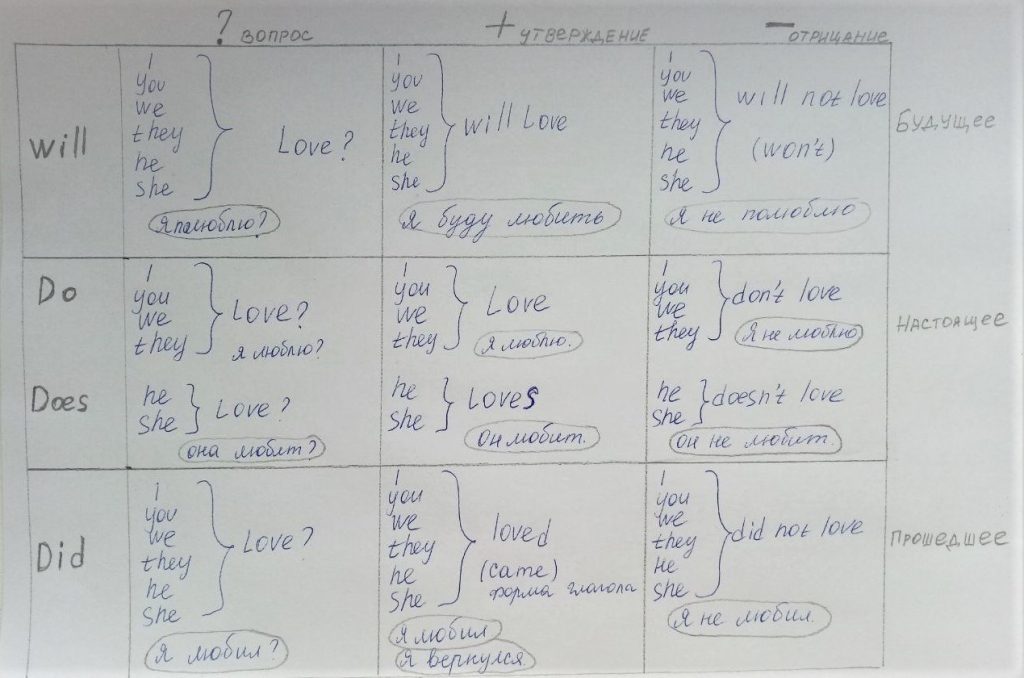 ? вопрос
+ утверждение
— отрицание
Will
I
you
we
they
he
she
Love?
Я полюблю?
I
you
we
they
he
she
will Love
Я буду любить
I
you
we
they
he
she
will not love
(won't)
Я не полюблю
Будущее
Do
I
you
we
they
Love?
я люблю?
I
you
we
they
Love
Я люблю.
I
you
we
they
don't love
Я не люблю
Настоящее
Does
he
she
Love?
она любит?
he
she
Loves
Он любит.
he
she
doesn't love
Он не любит.
Did
I
you
we
they
he
she
Love?
Я любил?
I
you
we
they
he
she
loved
(came)
форма глагола
Я любил
Я вернулся.
I
you
we
they
He
she
did not love
Я не любил.
Прошедшее